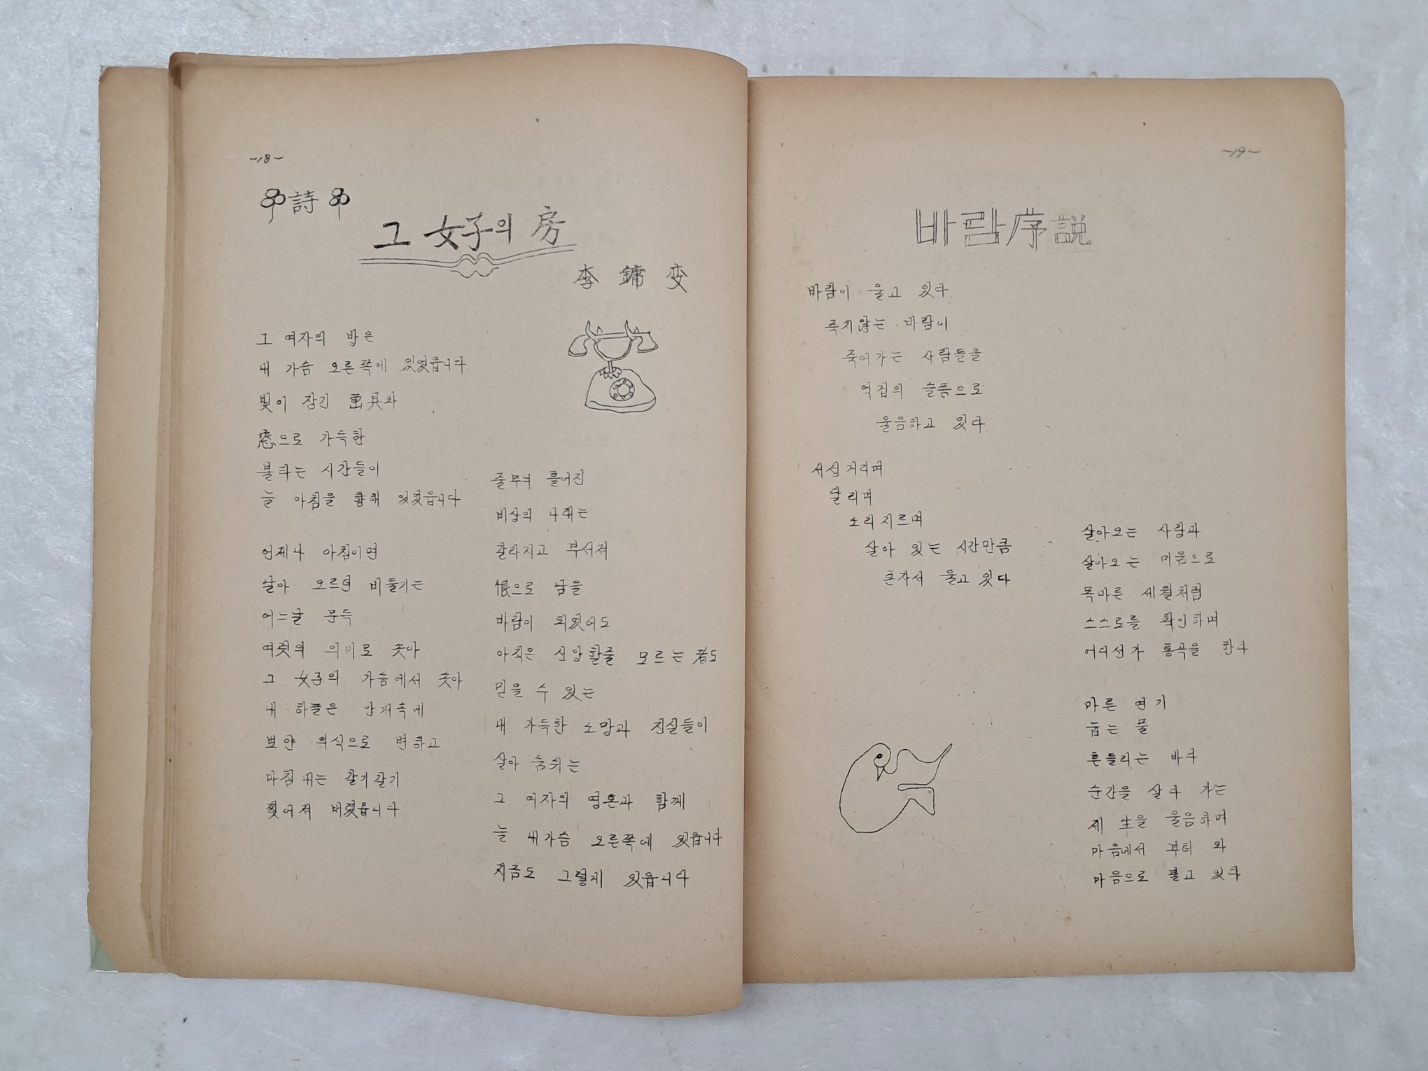 -18-
詩
그 女子의 房
李 鏞 变
그 여자의 방은
내 가슴 오른쪽에 있었읍니다
빛이 잠긴 畫具와
窓으로 가득한
불타는 시간들이
늘 아침을 향해 있었읍니다
언제나 아침이면
살아 오르던 비둘기는
어느날 문득
여럿의 의미로 솟아
그 女子의 가슴에서 솟아
내 하늘은 안개속에
뽀얀 의식으로 변하고
마침내는 갈기갈기
찢어져 버렸읍니다
줄무늬 흩어진
비상의 나래는
갈라지고 부서져
恨으로 남을
바람이 되었어도
아직은 신앙할줄 모르는 者도
믿을 수 있는
내 가득한 소망과 진실들이
살아 숨쉬는
그 여자의 영혼과 함께
늘 내가슴 오른쪽에 있읍니다
지금도 그렇게 있읍니다
-19-
바람序説
바람이 울고 있다
죽지않는 바람이
죽어가는 사람들을
억겁의 슬픔으로
울음하고 있다
서성거리며
달리며
소리지르며
살아 있는 시간만큼
혼자서 울고 있다
살아오는 사람과
살아오는 미움으로
목마른 세월처럼
스스로를 확인하며
어디선가 통곡을 한다
마른 연기
눕는 풀
흔들리는 바다
순간을 살다 가는
제 生을 울음하며
마음에서 부터 와
마음으로 울고 있다